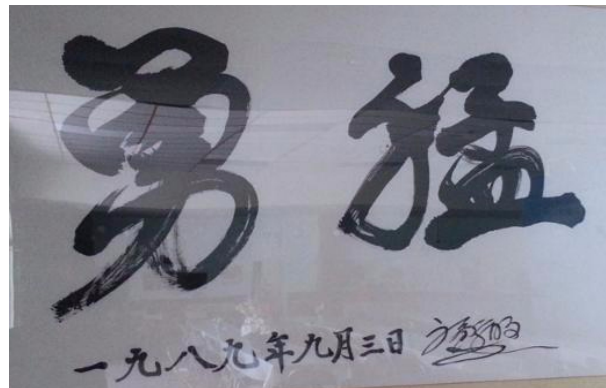 勇猛
一九八九年九月三日